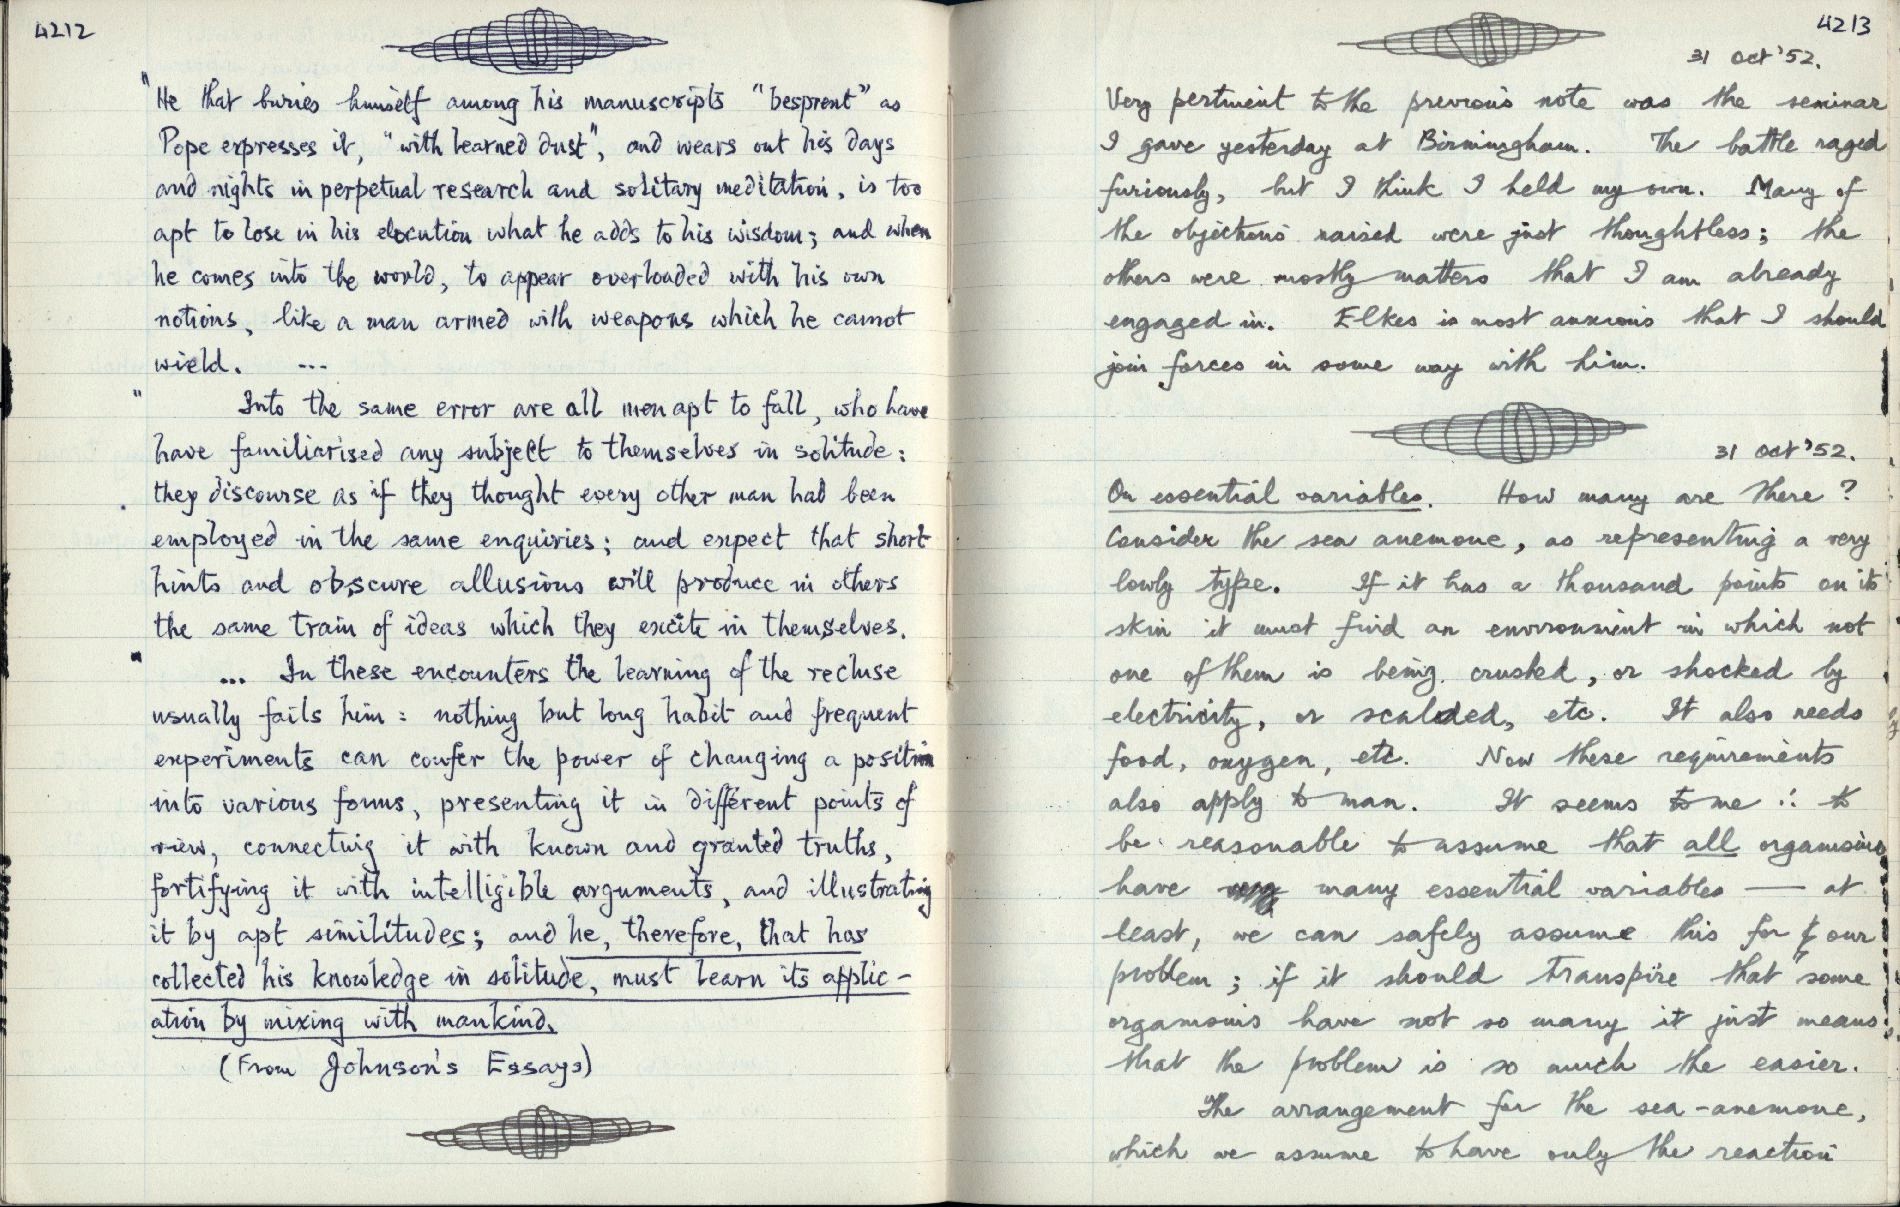 4212
"He that buries himself among his manuscripts "besprent" as
Pope expresses it, "with learned dust", and wears out his days
and nights in perpetual research and solitary meditation, is too
apt to lose in his elocution what he adds to his wisdom; and when
he comes into the world, to appear overloaded with his own
notions, like a man armed with weapons which he cannot
wield. ...
" Into the same error are all men apt to fall, who have
have familiarised any subject to themselves in solitude:
they discourse as if they thought every other man had been
employed in the same enquiries; and expect that short
hints and obscure allusions will produce in others
the same train of ideas which they excite in themselves.
" ... In these encounters the learning of the recluse
usually fails him: nothing but long habit and frequent
experiments can confer the power of changing a position
into various forms, presenting it in different points of
view, connecting it with known and granted truths,
fortifying it with intelligible arguments, and illustrating
it by apt similitudes; and he, therefore, that has
collected his knowledge in solitude, must learn its applic-
ation by mixing with mankind.
(From Johnson's Essays)
4213
31 Oct '52.
Very pertinent to the previous note was the seminar
I gave yesterday at Birmingham. The battle raged
furiously, but I think I held my own. Many of
the objections raised were just thoughtless; the
others were mostly matters that I am already
engaged in. Elkes is most anxious that I should
join forces in some way with him.
31 Oct '52.
On essential variables. How many are there?
Consider the sea anemone, as representing a very
lowly type. If it has a thousand points on its
skin it must find an environment in which not
one of them is being crushed, or shocked by
electricity, or scalded, etc. It also needs
food, oxygen, etc. Now these requirements
also apply to man. It seems to me ∴ to
be reasonable to assume that all organisms
have very many essential variables — at
least, we can safely assume this for our
problem; if it should transpire that some
organisms have not so many it just means
that the problem is so much the easier.
The arrangement for the sea-anemone,
which we assume to have only the reaction